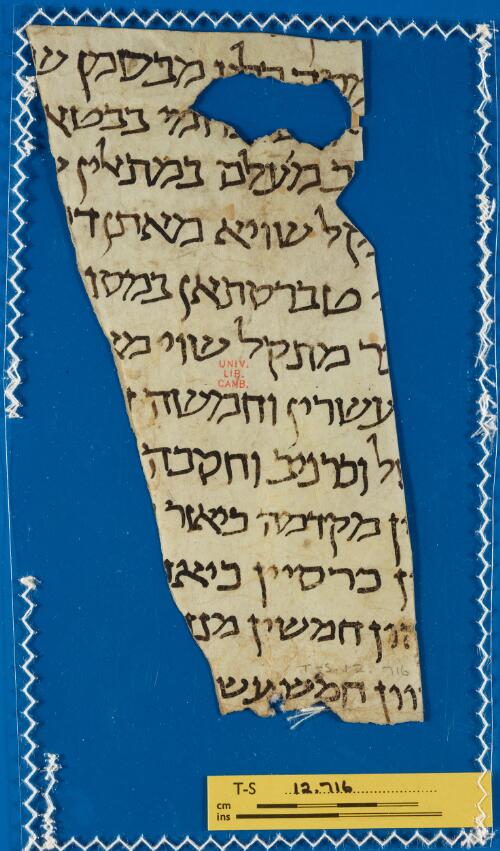 מבסמן ש
בבטא
ב מעלם במתאלין
קל שויא מאתן ד
טברסתאן במסו
ר מתקל שוי מא
עשרין וחמשה
ל וכרניב וחקבה
ן מקדמה ביאור
ן כרסיין ביאו
הון חמשין מנ
וון חמש עש
UNIV.
LIB.
CAMB.
T-S 12 716
T-S 12.716
cm
ins